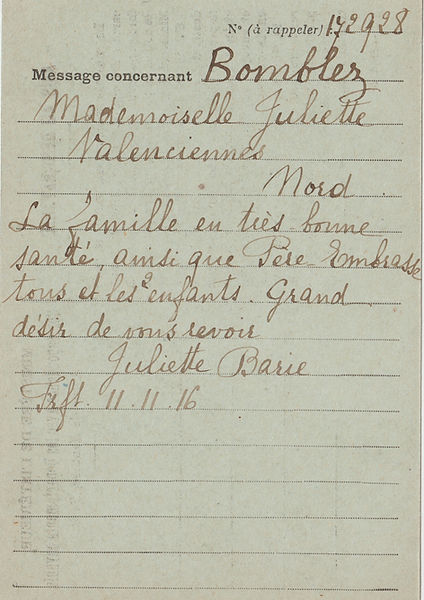 N° (à rappeler) : 172928
Message concernant Bomblez
Mademoiselle Juliette
Valenciennes
Nord
La famille en très bonne
santé, ainsi que Père Embrasse
tous et les 2 enfants. Grand
désir de vous revoir
Juliette Barie
Frft. 11.11.16